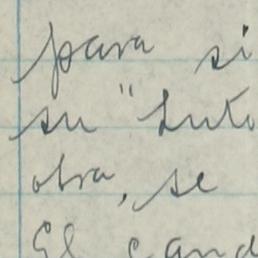 para si
su "Luto
obra, se
El cand